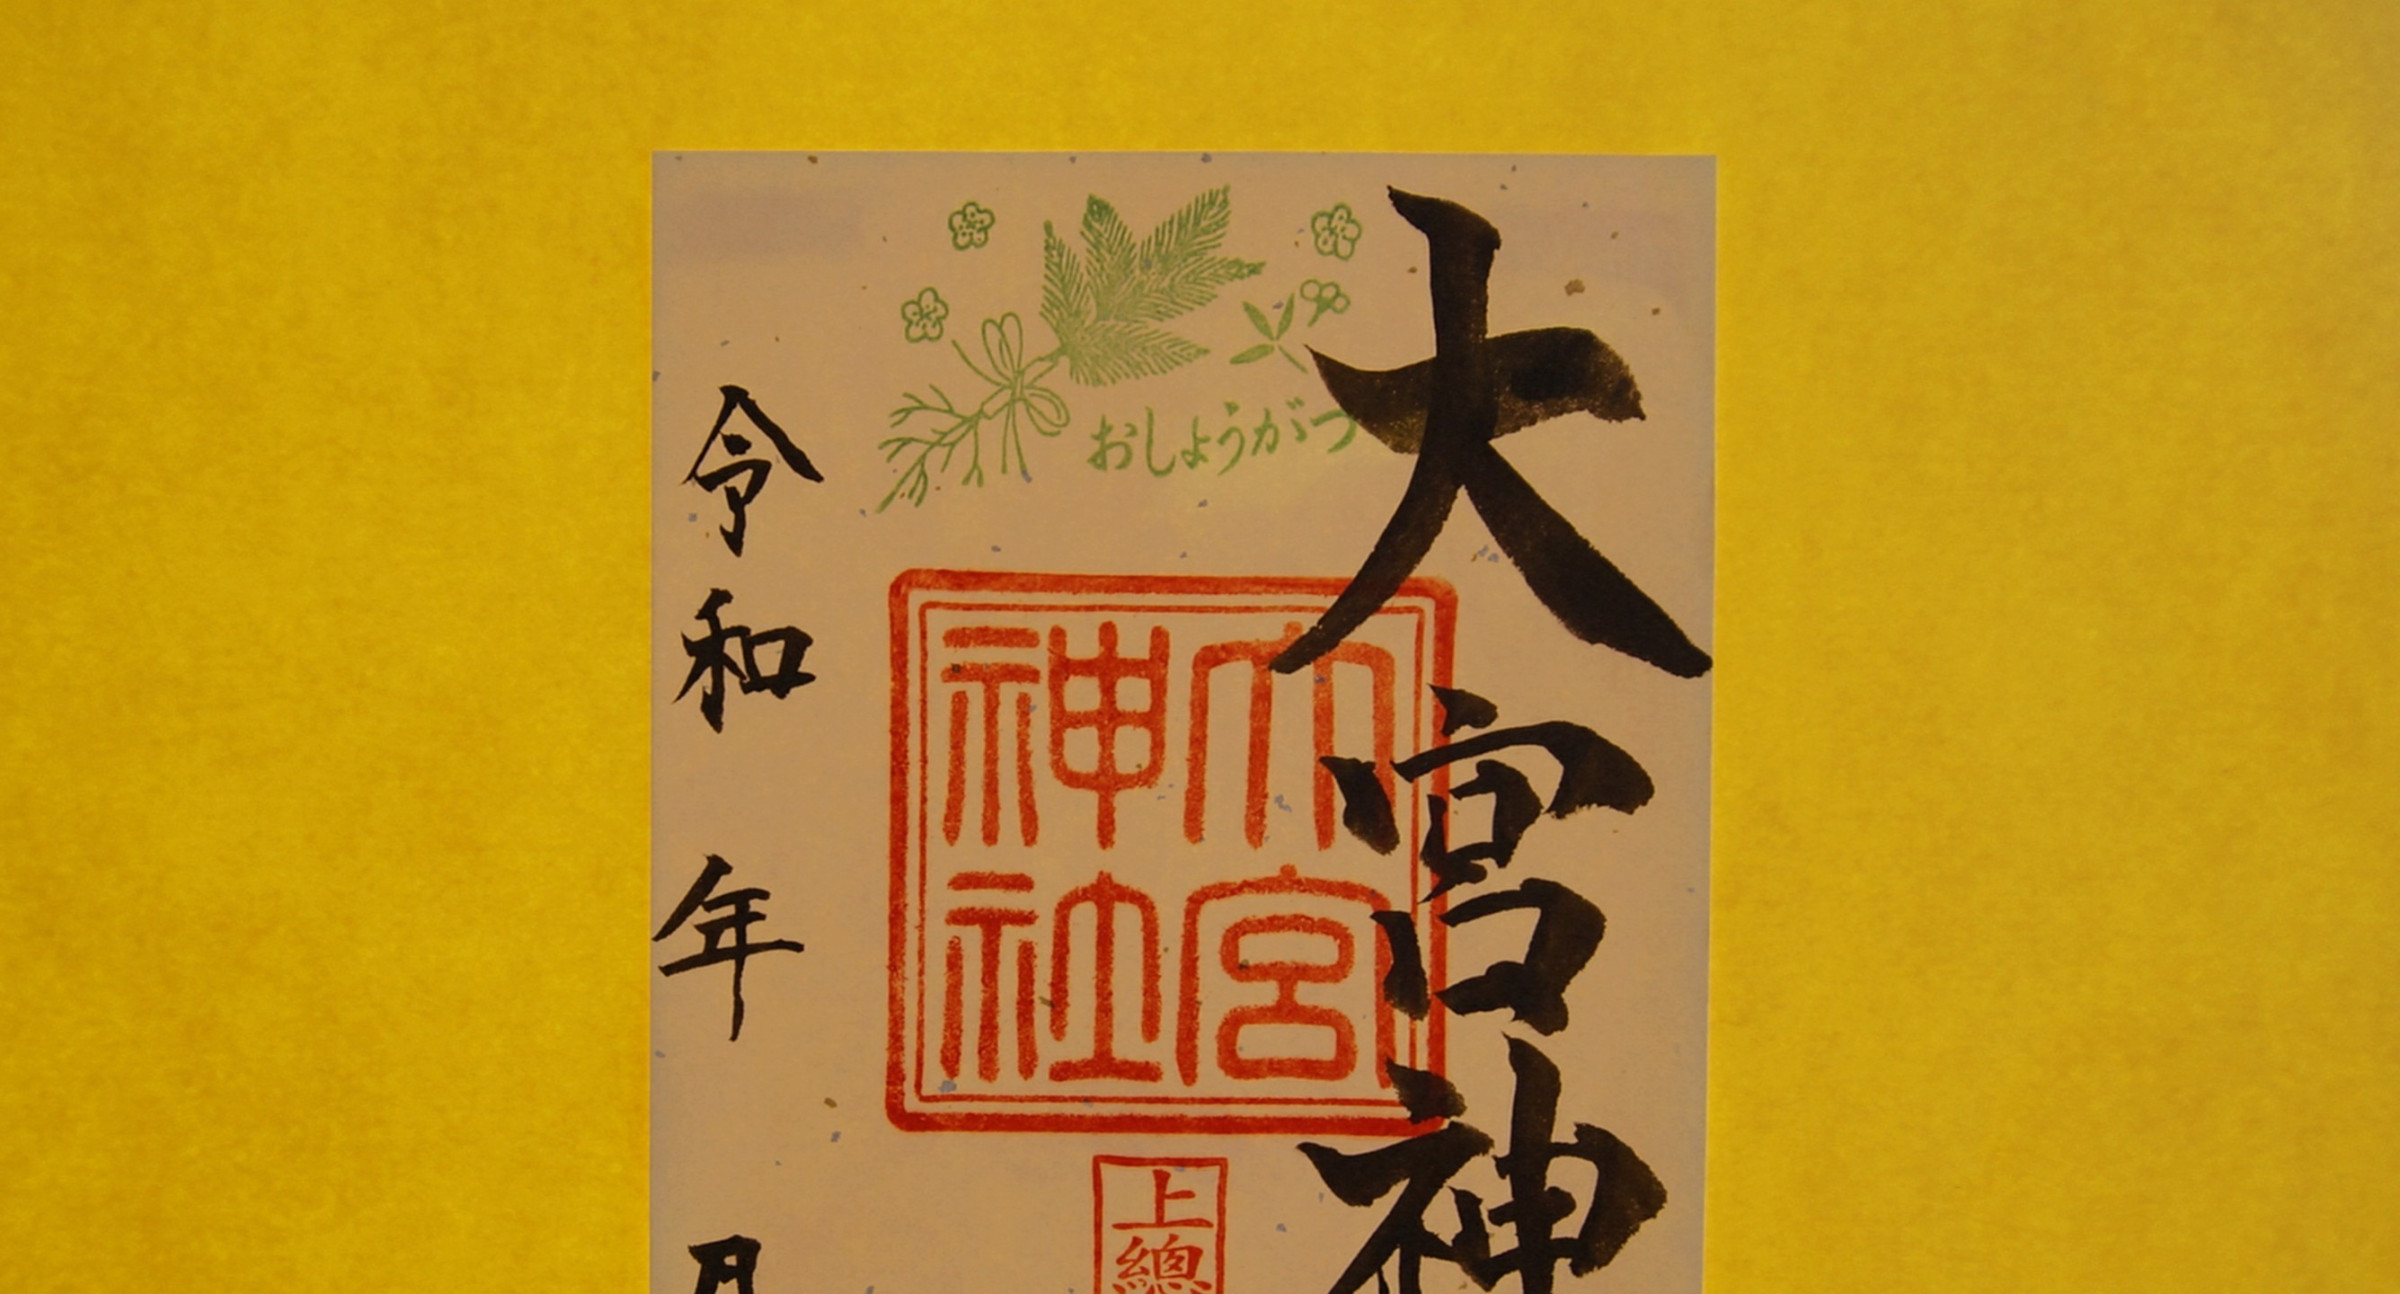 大宮神
おしょうがつ
大宮
神社
上總
令和 年 月